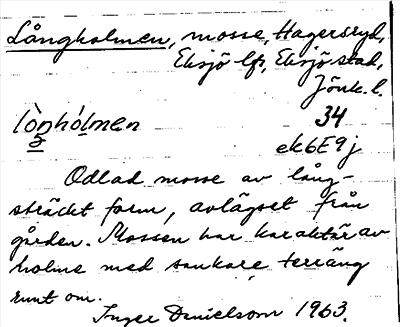 Långholmen, mosse, Hagersryd,
Eksjö lfs, Eksjö stad,
Jönk. l.
lòŋhólmen 34
ek6E9j
Odlad mosse av lång-
sträckt form, avlägset från
gården. Mossen har karaktär av
holme med sankare terräng
runt om.
Inger Danielsson 1963.